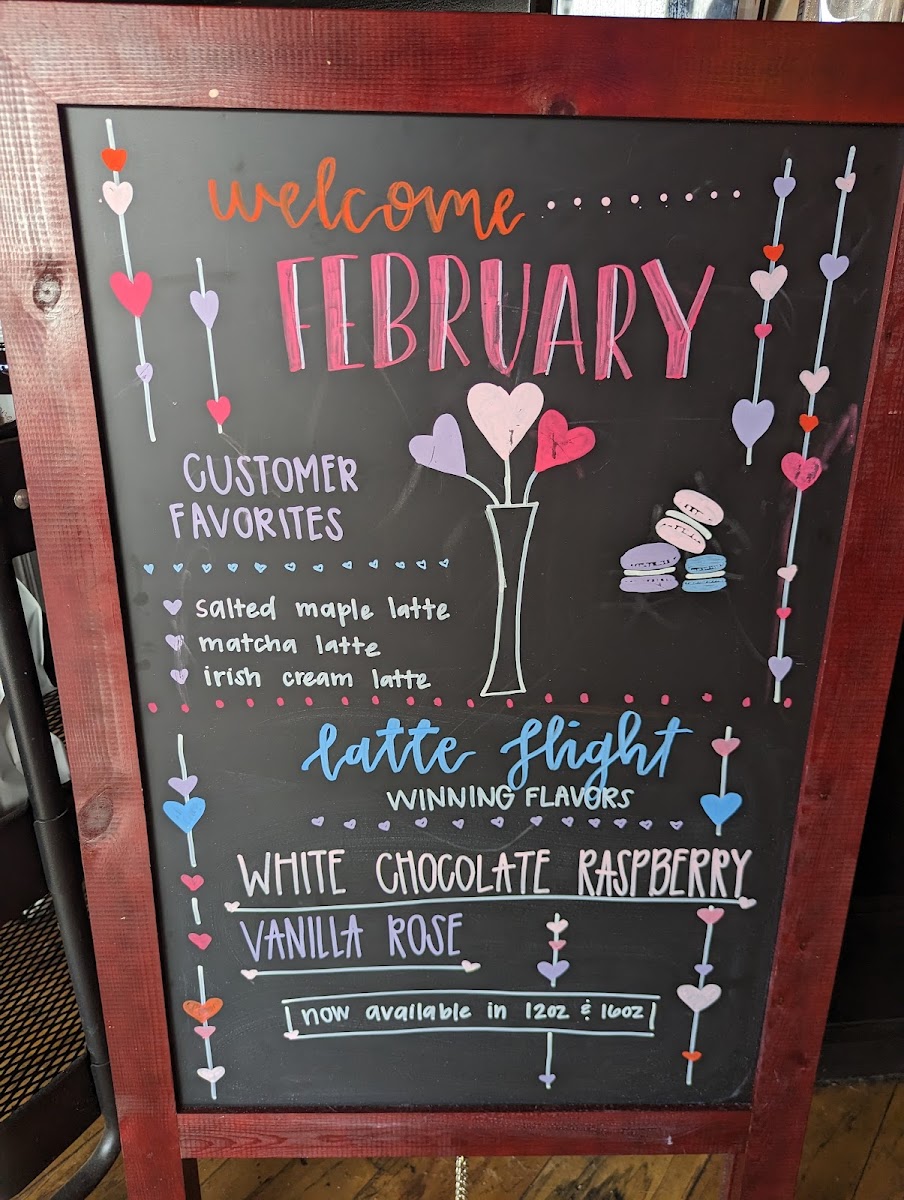 welcome
FEBRUARY
CUSTOMER
FAVORITES
salted maple latte
matcha latte
irish cream latte
latte flight
WINNING FLAVORS
WHITE CHOCOLATE RASPBERRY
VANILLA ROSE
now available in 12oz & 16oz